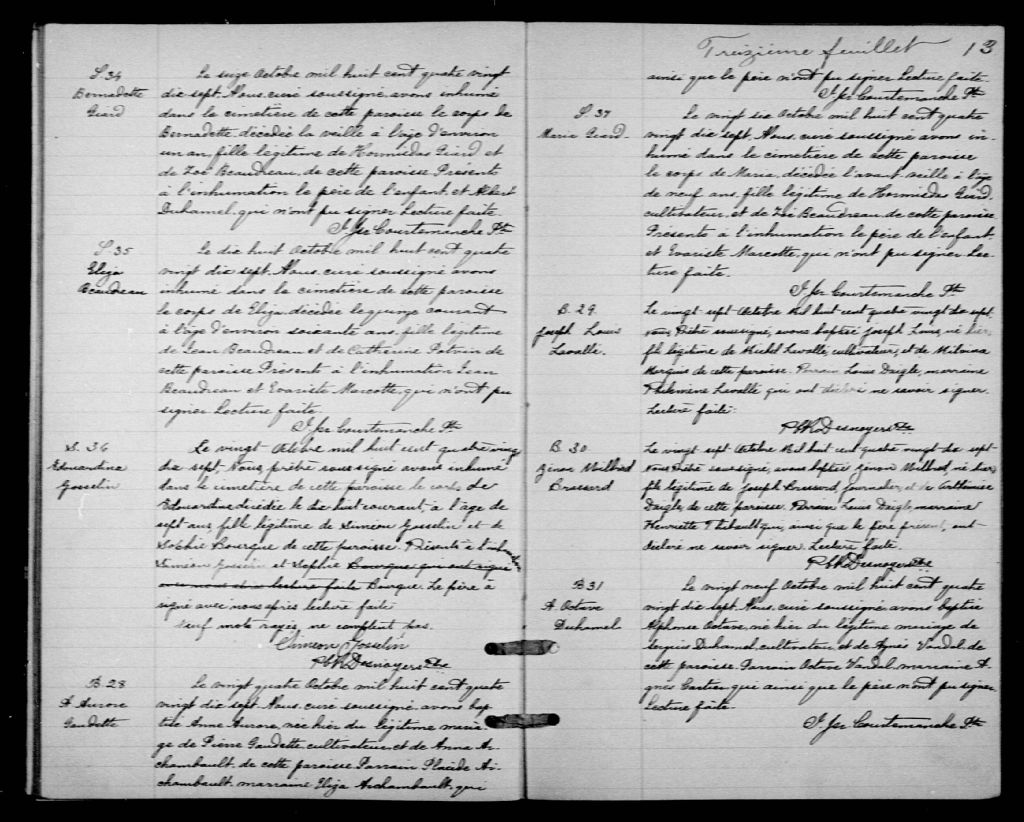 S. 34
Bernadette
Giard
Le seize Octobre mil huit cent quatre vingt
dix sept. Nous, curé soussigné, avons inhumé
dans le cimetière de cette paroisse le corps de
Bernadette, décédée la veille à l'âge d'environ
un an, fille légitime de Hormisdas Giard et
de Zoé Beaudreau, de cette paroisse. Présents
à l'inhumation le père de l'enfant et Albert
Duhamel, qui n'ont pu signer. Lecture faite.
J. Jer Courtemanche Ptre
S. 35
Eliza
Beaudreau
Le dix huit Octobre mil huit cent quatre
vingt dix sept. Nous, curé soussigné avons
inhumé dans le cimetière de cette paroisse
le corps de Eliza, décédée le quinze courant
à l'âge d'environ soixante ans, fille légitime
de Jean Beaudreau et de Catherine Potvin de
cette paroisse. Présents à l'inhumation Jean
Beaudreau et Evariste Marcotte, qui n'ont pu
signer. Lecture faite.
J. Jer Courtemanche Ptre
S. 36
Edouardina
Gosselin
Le vingt Octobre mil huit cent quatre vingt
dix sept. Nous prêtre soussigné avons inhumé
dans le cimetière de cette paroisse le corps de
Edouardina décédée le dix huit courant, à l'âge de
sept ans, fille légitime de Siméon Gosselin et de
Sophie Bourque de cette paroisse. Présents à l'inhumation
Siméon Gosselin et Sophie Bourque qui ont signé
avec nous lecture faite Bourque. Le père a
signé avec nous après lecture faite
neuf mots rayés ne comptent pas.
Simeon Gosselin
Desnoyers Ptre
B. 28
A. Aurore
Gaudette
Le vingt quatre Octobre mil huit cent quatre
vingt dix sept. Nous, curé soussigné, avons bap
tisé Anne Aurore, née hier du légitime maria
ge de Pierre Gaudette, cultivateur, et de Anna Ar-
chambault, de cette paroisse. Parrain Placide Ar-
chambault, marraine Eliza Archambault, qui
Treizième feuillet 13
ainsi que le père n'ont pu signer. Lecture faite.
J. Jer Courtemanche Ptre
S. 37
Marie Giard.
Le vingt six Octobre mil huit cent quatre
vingt dix sept. Nous, curé soussigné avons in-
humé dans le cimetière de cette paroisse
le corps de Marie, décédée l'avant veille à l'âge
de neuf ans, fille légitime de Hormisdas Giard,
cultivateur, et de Zoé Beaudreau, de cette paroisse.
Présents à l'inhumation le père de l'enfant,
et Evariste Marcotte, qui n'ont pu signer. Lec-
ture faite.
J. Jer Courtemanche Ptre
B. 29.
Joseph Louis
Lavallé.
Le vingt-sept Octobre mil huit cent quatre vingt dix sept,
nous Prêtre soussigné, avons baptisé Joseph Louis, né hier,
fils légitime de Michel Lavallé, cultivateur, et de Malvina
Marquis de cette paroisse. Parrain Louis Daigle, marraine
Philomène Lavallé qui ont déclaré ne savoir signer.
Lecture faite.
Desnoyers Ptre
B. 30
Zénon Wilbrod
Brossard
Le vingt sept Octobre mil huit cent quatre vingt dix sept
nous Prêtre soussigné, avons baptisé Zénon Wilbrod, né hier
fils légitime de Joseph Brossard, journalier, et de Arthémise
Daigle, de cette paroisse. Parrain Louis Daigle, marraine
Henriette Thibault qui, ainsi que le père présent, ont
déclaré ne savoir signer. Lecture faite.
Desnoyers Ptre
B 31
A. Octave
Duhamel
Le vingt neuf Octobre mil huit cent quatre
vingt dix sept. Nous, curé soussigné, avons baptisé
Alphonse Octave, né hier du légitime mariage de
Sergius Duhamel, cultivateur, et de Agnès Vandal, de
cette paroisse. Parrain Octave Vandal, marraine A-
gnès Cartier qui ainsi que le père n'ont pu signer.
Lecture faite.
J. Jer Courtemanche Ptre